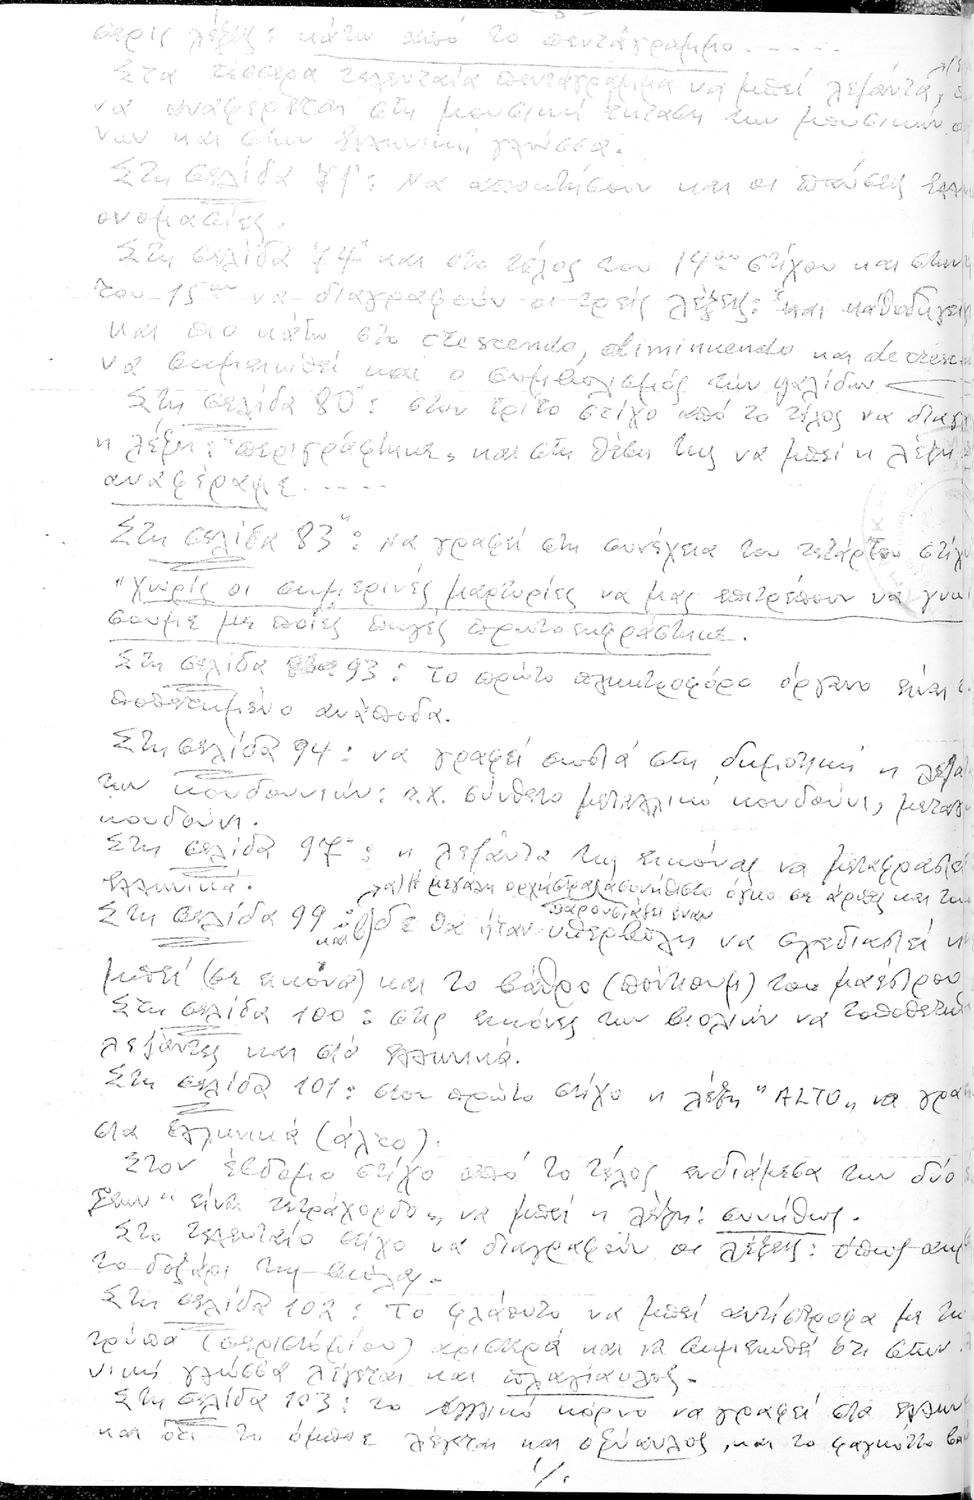 - 5 -
λέξεις: κάτω από το πεντάγραμμο.----
Στα τέσσερα τελευταία πεντάγραμμα να μπεί λεζάντα,
να αναφέρεται στη μουσική έκταση των μουσικών
νων και στην Ελληνική γλώσσα.
Στη σελίδα 71: Να αποκτήσουν και οι παύσεις
ονομασίες.
Στη σελίδα 74 και στο τέλος του 14ου στίχου και στην
του 15ου να διαγραφούν οι τρείς λέξεις: "και καθοδηγεί
και πιο κάτω στο crescendo, diminuendo και
να σημειωθεί και ο συμβολισμός των ψαλίδων <
Στη σελίδα 80: στον τρίτο στίχο από το τέλος να διαγ
η λέξη: "περιγράφηκε„ και στη θέση της να μπεί η λέξη
αναφέραμε.----
Στη σελίδα 83: Να γραφεί στη συνέχεια του τετάρτου στίχ
"Χωρίς οι σημερινές μαρτυρίες να μας επιτρέπουν να γνω
σουμε με ποίες πηγές πρωτοεκφράστηκε.
Στη σελίδα 93: το πρώτο πληκτροφόρο όργανο είναι
ποθετημένο ανάποδα.
Στη σελίδα 94: να γραφεί σωστά στη δημοτική η λεζά
των κουδουνιών: π.χ. σύνθετο μεταλλικό κουδούνι, μεταλ
κουδούνι.
Στη σελίδα 97: η λεζάντα της εικόνας να μεταφραστεί
Ελληνικά.
α) Η μεγάλη ορχήστρα
παρουσιάζει έναν
Στη σελίδα 99: και β) δε θα ήταν υπερβολή να σχεδιαστεί
μπεί (σε εικόνα) και το βάθρο (πόντιουμ) του μαέστρου
Στη σελίδα 100: στις εικόνες των βιολιών να τοποθετηθ
λεζάντες και στά ελληνικά.
Στη σελίδα 101: στον πρώτο στίχο η λέξη "ALTO„ να γρα
στα Ελληνικά (άλτο).
Στον έβδομο στίχο από το τέλος ενδιάμεσα των δύο
ξεων "είναι τετράχορδο„ να μπεί η λέξη: συνήθως.
Στο τελευταίο στίχο να διαγραφούν οι λέξεις: όπως
το δοξάρι της βιόλας.
Στη σελίδα 102: το φλάουτο να μπεί αντίστροφα με τη
τρύπα (περιστόμιου) αριστερά και να σημειωθεί ότι στην
νική γλώσσα λέγεται και πλαγίαυλος.
Στη σελίδα 103: το κόρνο να γραφεί στα ελλην
και ότι το όμποε λέγεται και οξύαυλος, και το φαγκότο
./.